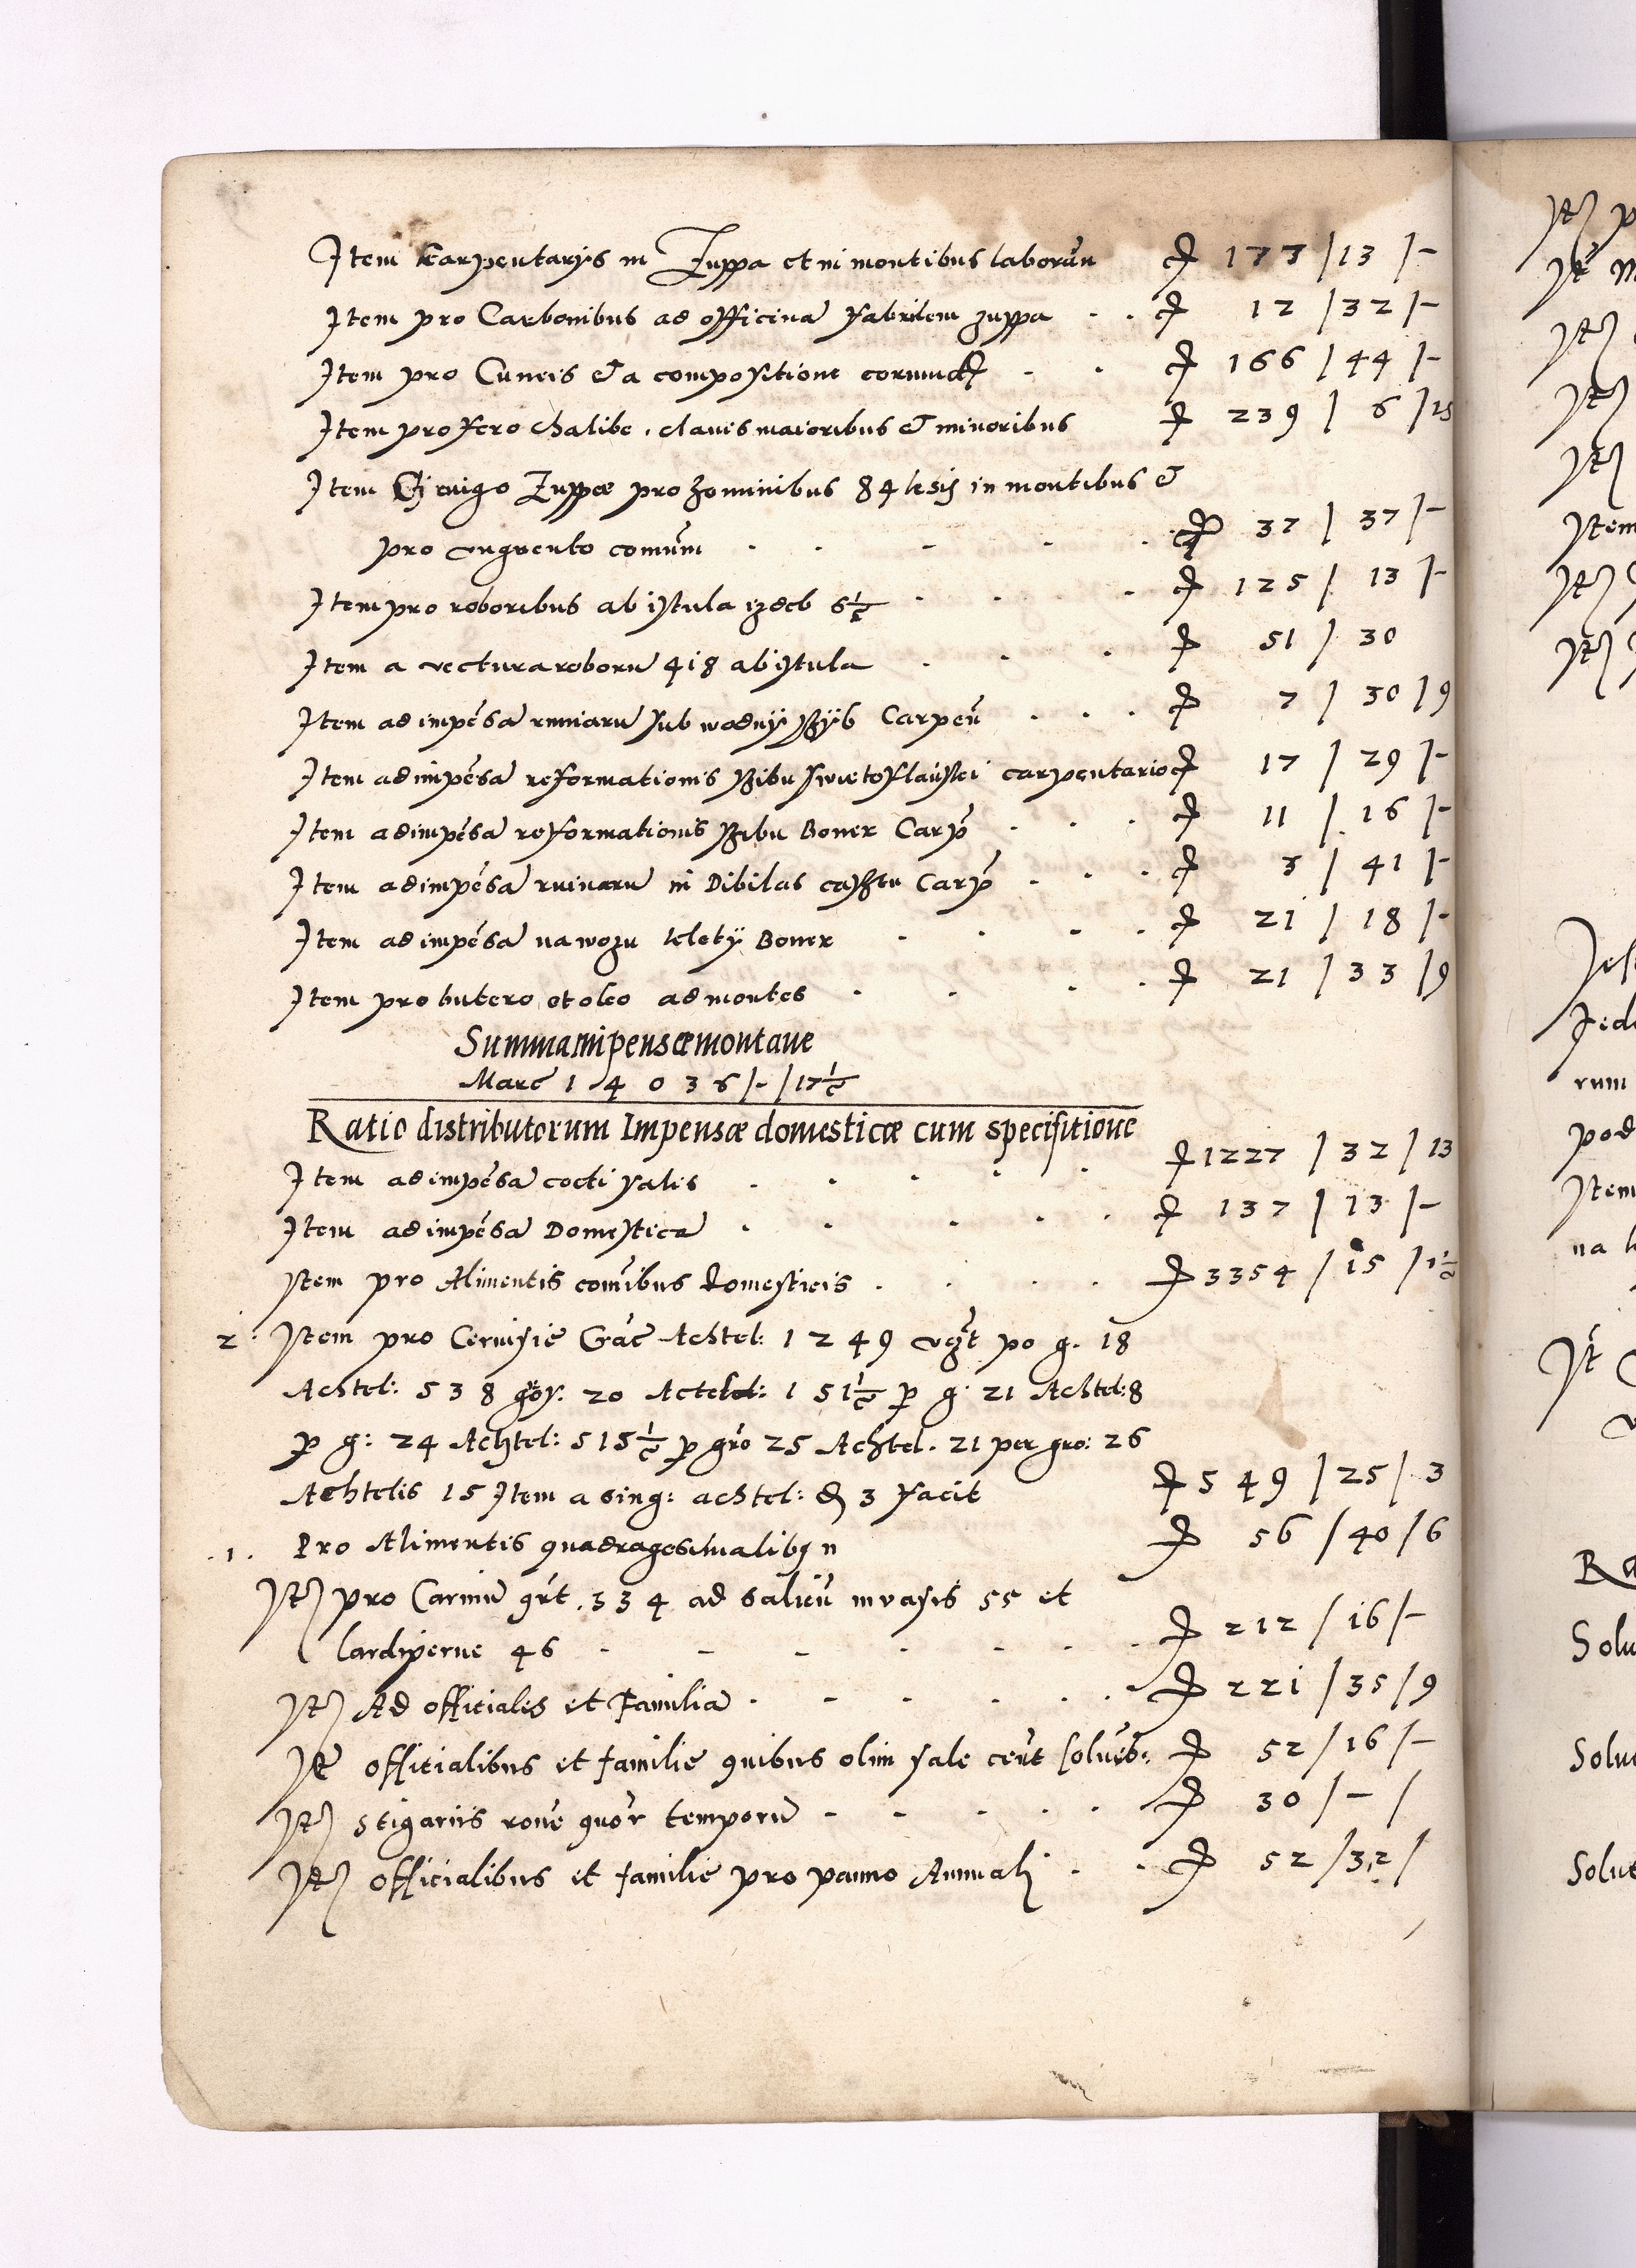 Item Carpentarys in Zuppa et in montibus laborūn ꝑ 177 / 13 /-
Item pro Carbonibus ad officinā fabrilem zuppa . . ꝑ 12 / 32 /-
Item pro Cuneis & a compositione eorund - . ꝑ 166 / 44 /-
Item pro fero chalibe, clauis maioribus & minoribus ꝑ 239 / 6 / 15
Item Cyrurgo Zuppæ pro hominibus 84 lesis in montibus &
pro vngvento comūm . . - . . ꝑ 37 / 37 /-
Item pro roboribus ab istula 6½ . . . . ꝑ 125 / 13 /-
Item a vectura roborū 418 ab istula . . . ꝑ 51 / 30
Item ad impēsā ruinarū sub wodny Carpen̄ . . . ꝑ 7 / 30 / 9
Item ad impēsā reformationis carpentario ꝑ 17 / 29 /-
Item ad impēsā reformationis Boner Carp̄ . . . ꝑ 11 / 16 /-
Item ad impēsā ruinarū in Dibilas Carp̄ . . . ꝑ 3 / 41 /-
Item ad impēsā na wozu Boner . . . . ꝑ 21 / 18 /-
Item pro butero et oleo ad montes . . . . ꝑ 21 / 33 / 9
Summa impensæ montane
Marc 1 4 0 3 6 /-/ 17½
Ratio distributorum Impensæ domesticæ cum specifitione
Item ad impēsā cocti salis . . . . . ꝑ 1227 / 32 / 13
Item ad impēsā Domesticā . . . . . ꝑ 137 / 13 /-
Item pro Alimentis com̄ibus domesticis . . . . ꝑ 3354 / 15 / 1½
2: Item pro Ceruisie Crāc Achtel: 1249 po g. 18
Achtel: 538 20 Actel: 151½ ꝑ g: 21 Achtel: 8
ꝑ g: 24 Achtel: 515½ ꝑ gro 25 Achtel. 21 per gro: 26
Achtelis 15 Item a sing: achtel: 3 facit ꝑ 549 / 25 / 3
.1. Pro Alimentis quadragesimalibꝫ ꝑ 56 / 40 / 6
Itꝫ pro Carniū 334 ad saliēū in vasis 55 et
lardi perne 46 - - - . - . . ꝑ 212 / 16 /-
Itꝫ Ad officiales et Familiā . - . . . . . ꝑ 221 / 35 / 9
Itē officialibus et familie quibus olim sale cert̄ soluēb: ꝑ 52 / 16 /-
Itꝫ stigariis quōr temporū - - - . . ꝑ 30 /-/
Itꝫ officialibus et familie pro panno Annuali . . ꝑ 52 / 32 /